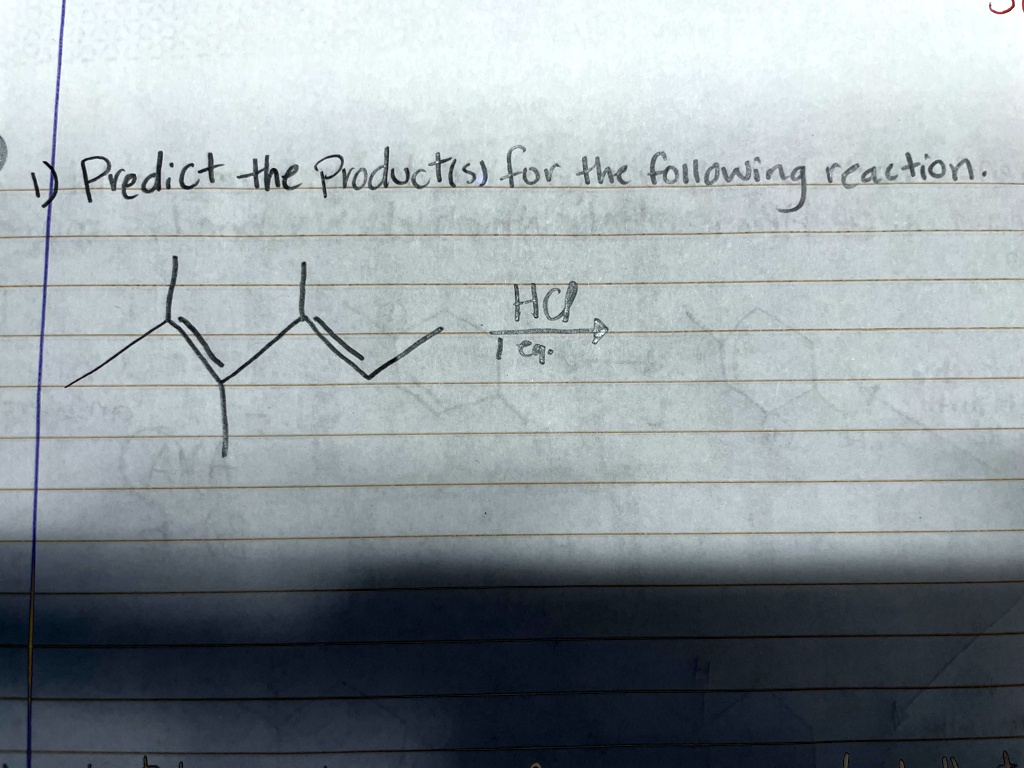 1) Predict the Product(s) for the following reaction.
HCl
1 eq.